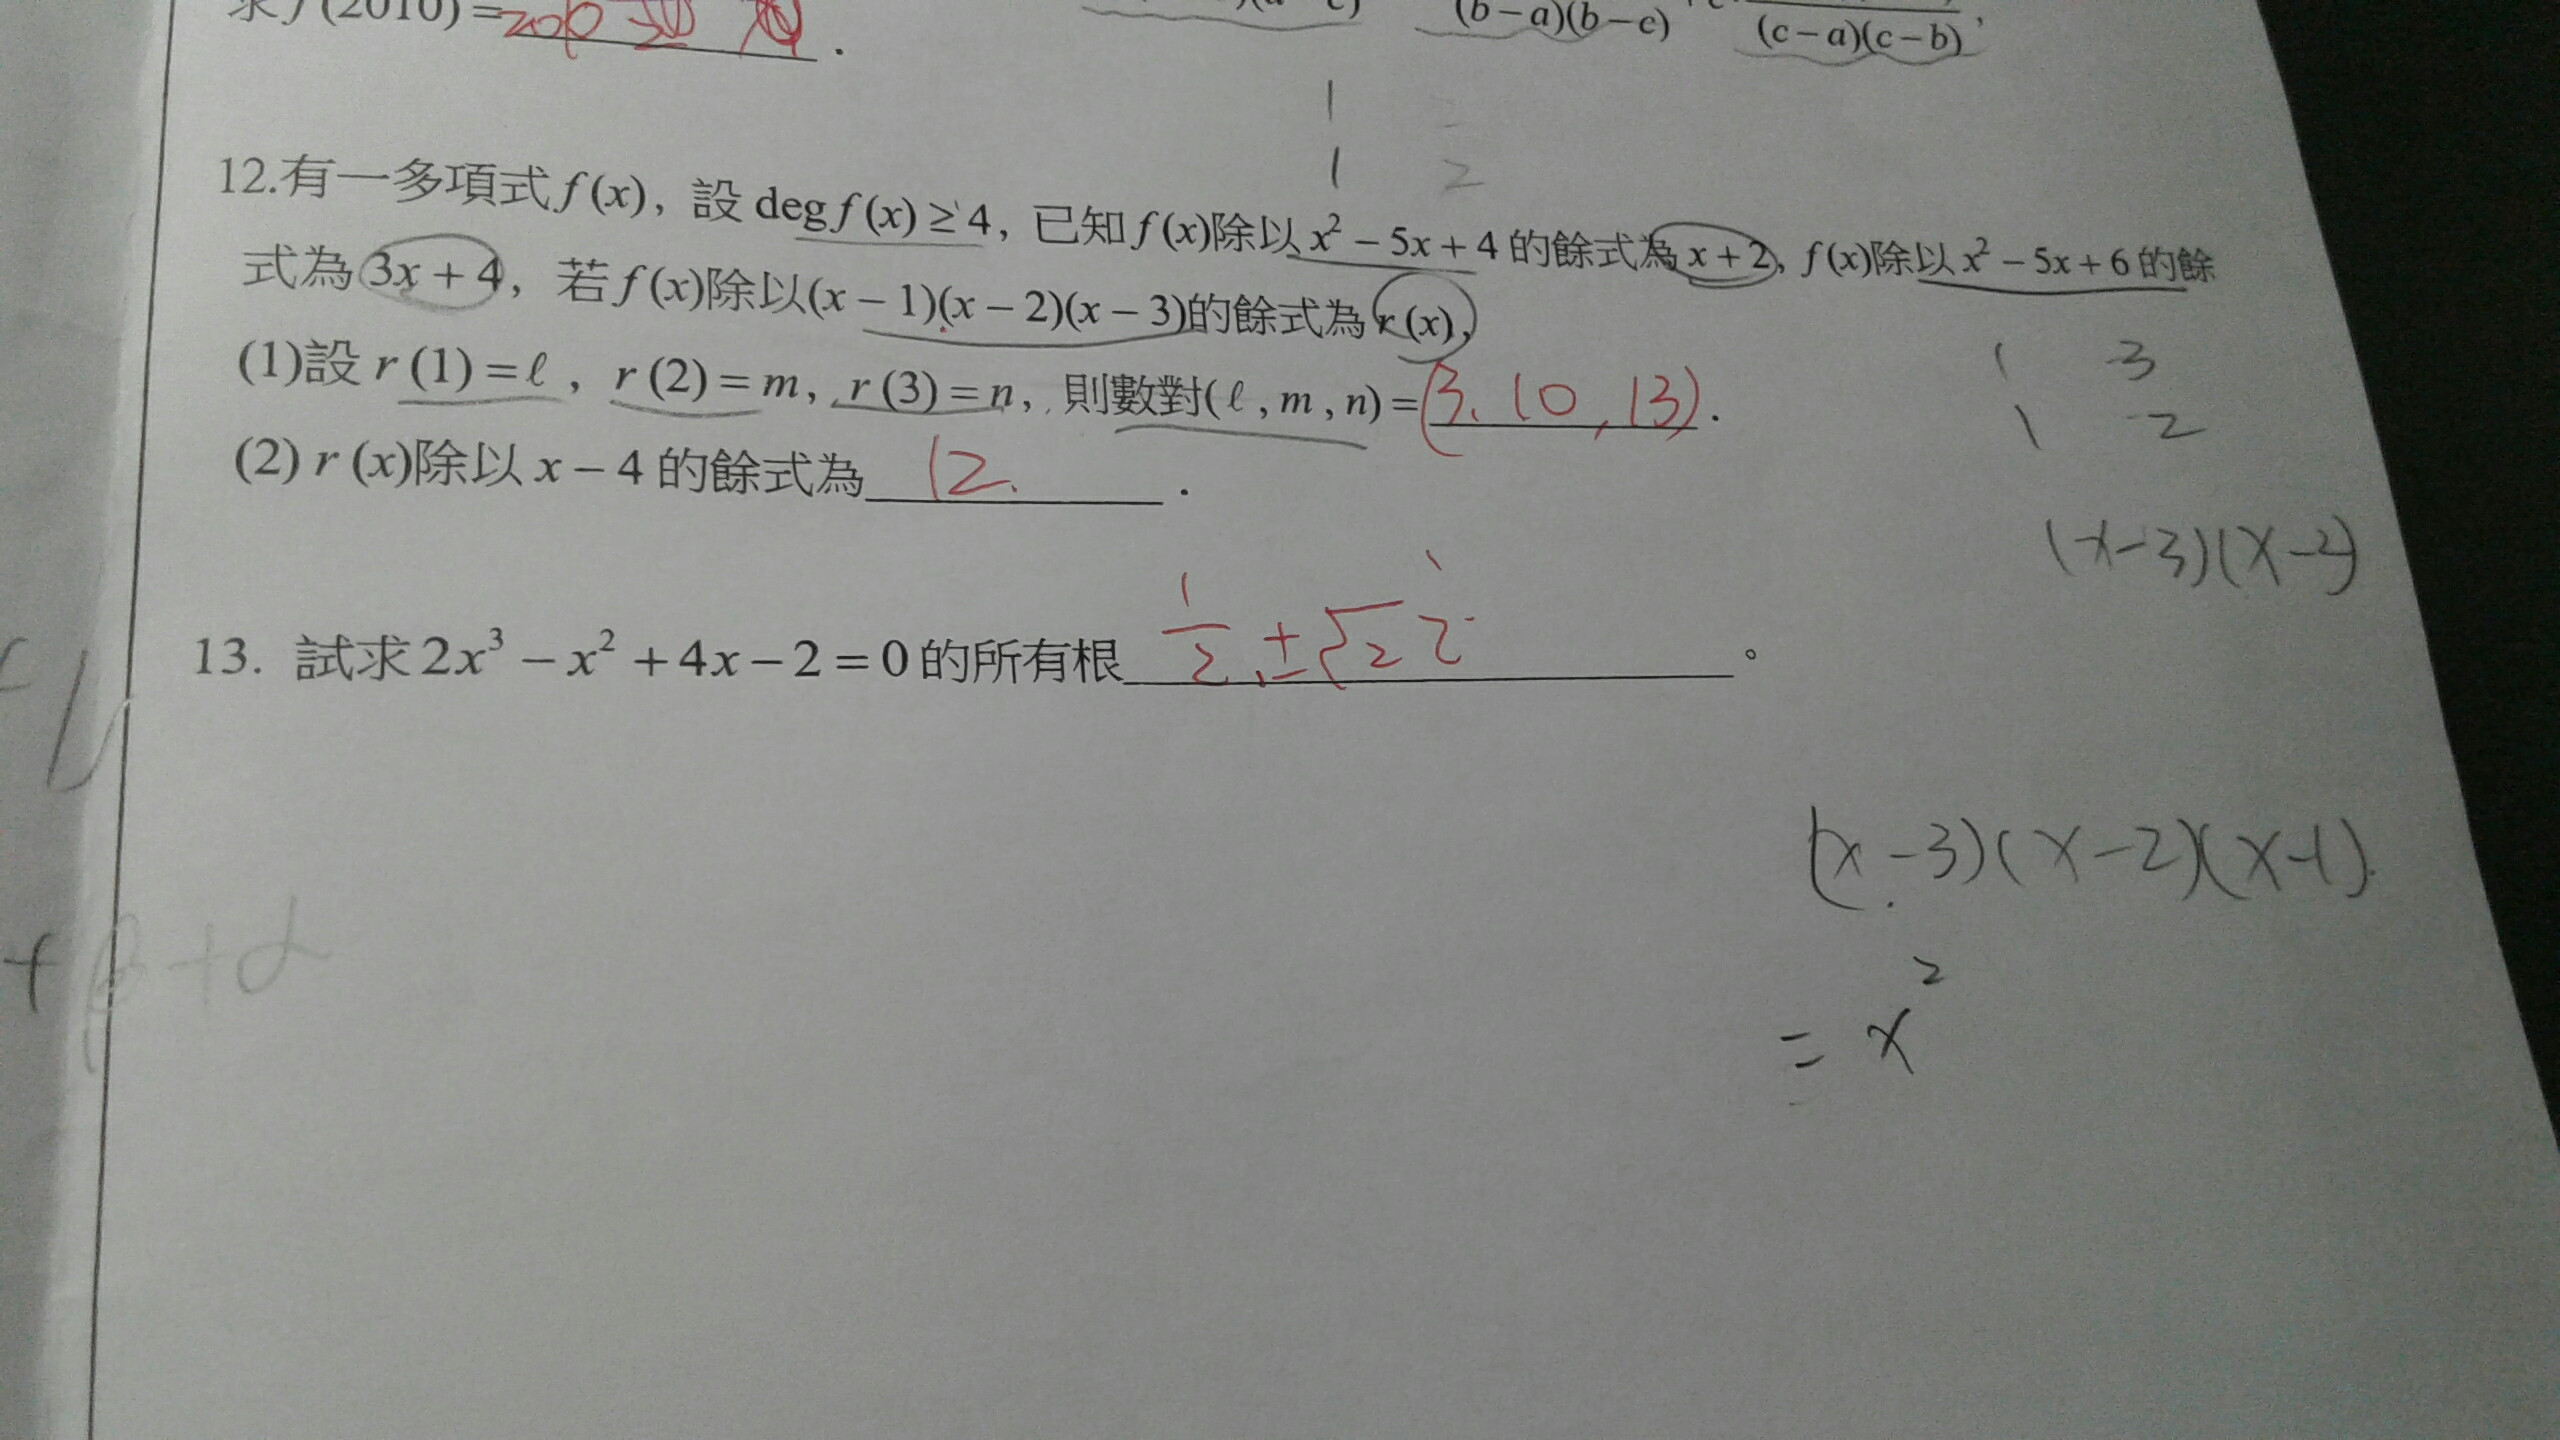 求 f (2010) =
(b − a)(b − c)
(c − a)(c − b) ,
1
1 2
12.有一多項式 f (x), 設 deg f (x) ≥ 4, 已知 f (x)除以 x² − 5x + 4 的餘式為 x + 2, f (x)除以 x² − 5x + 6 的餘
式為 3x + 4, 若 f (x)除以(x − 1)(x − 2)(x − 3)的餘式為 r (x),
(1)設 r (1) = ℓ , r (2) = m, r (3) = n, 則數對(ℓ , m , n) = (3, 10, 13).
(2) r (x)除以 x − 4 的餘式為 12.
1 3
1 -2
(x-3)(x-2)
13. 試求 2x³ − x² + 4x − 2 = 0 的所有根 1/2, ±√2 i 。
(x-3)(x-2)(x-1)
= x²
+β+α